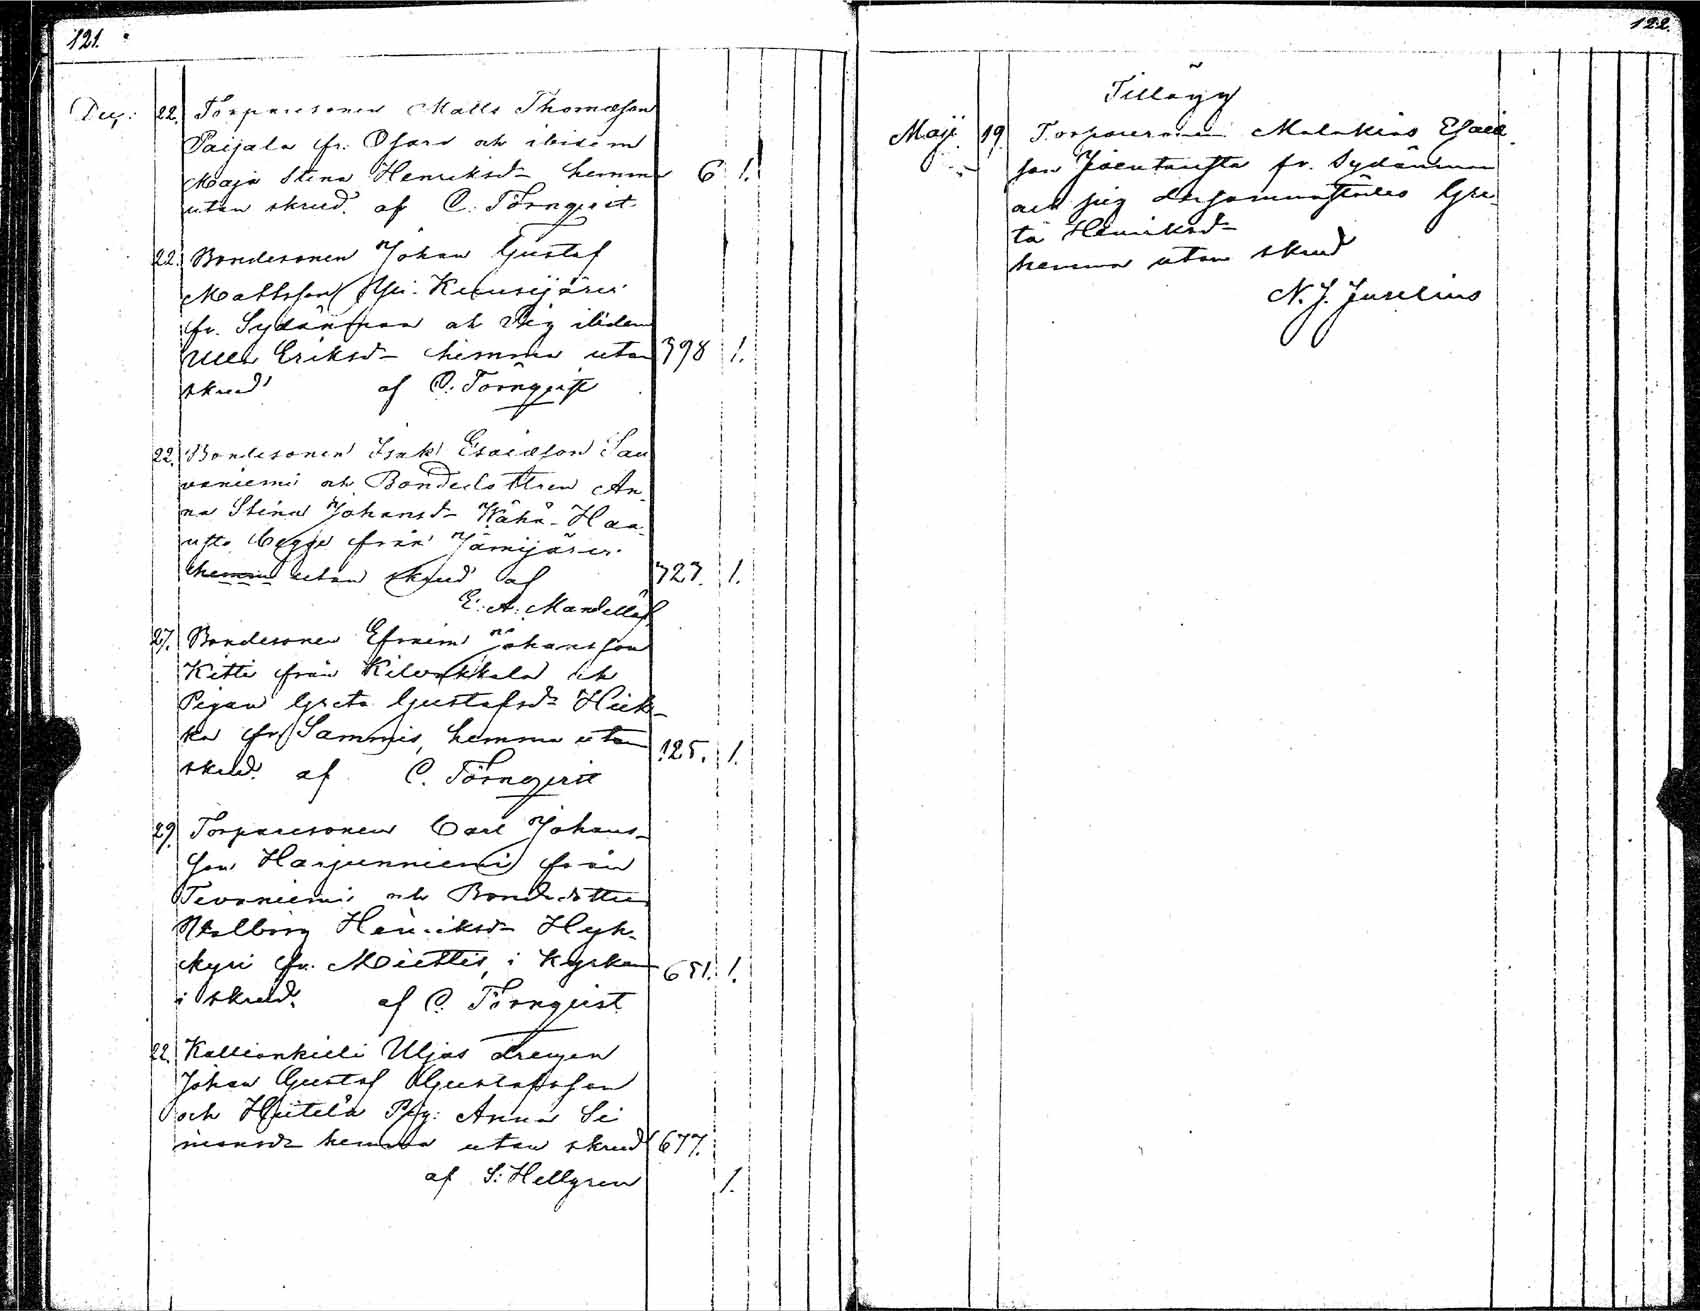 121.
Dec: 22. Torparesonen Matts Thomasson
Paijala fr. Osara och ibidem
Maja Stina Henriksd- hemma 6 1.
utan skrud. af C. Törnqvist
22. Bondesonen Johan Gustaf
Mattsson Yli-Keusijärvi
fr. Sydänmaa och Pig ibidem
Ulla Eriksd- hemma utan 398 1.
skrud af C. Törnqvist
22. Bondesonen Isak Esaiasson Sau
vaniemi och Bondedottren An-
na Stina Johansd- Wähä-Haa-
begge från Jämijärvi
hemma utan skrud af 727. 1.
E. A. Mandellöf
27. Bondesonen Efraim Johansson
Kitti från Kilvakkala och
Pigan Greta Gustafsd- Hiik-
ka fr. Sammis, hemma utan 125. 1.
skrud. af C. Törnqvist
29. Torparesonen Carl Johans-
son Harjunniemi från
Tevaniemi och Bondedottren
Walborg Henriksd- Hyh-
kyri fr. Miettis, i Kyrkan 651. 1.
i skrud. af C. Törnqvist
22. Kallionkieli Uljas drengen
Johan Gustaf Gustafsson
och Heitelä Pig: Anna Si
monsd- hemma utan skrud 677.
af S: Hellgren 1.
122.
Tillägg
Maji 19. Torparesonen Malakias Esaias
son fr. Sydänmaa
och pig Gre-
ta Henriksd-
hemma utan skrud
N. J. Juselius